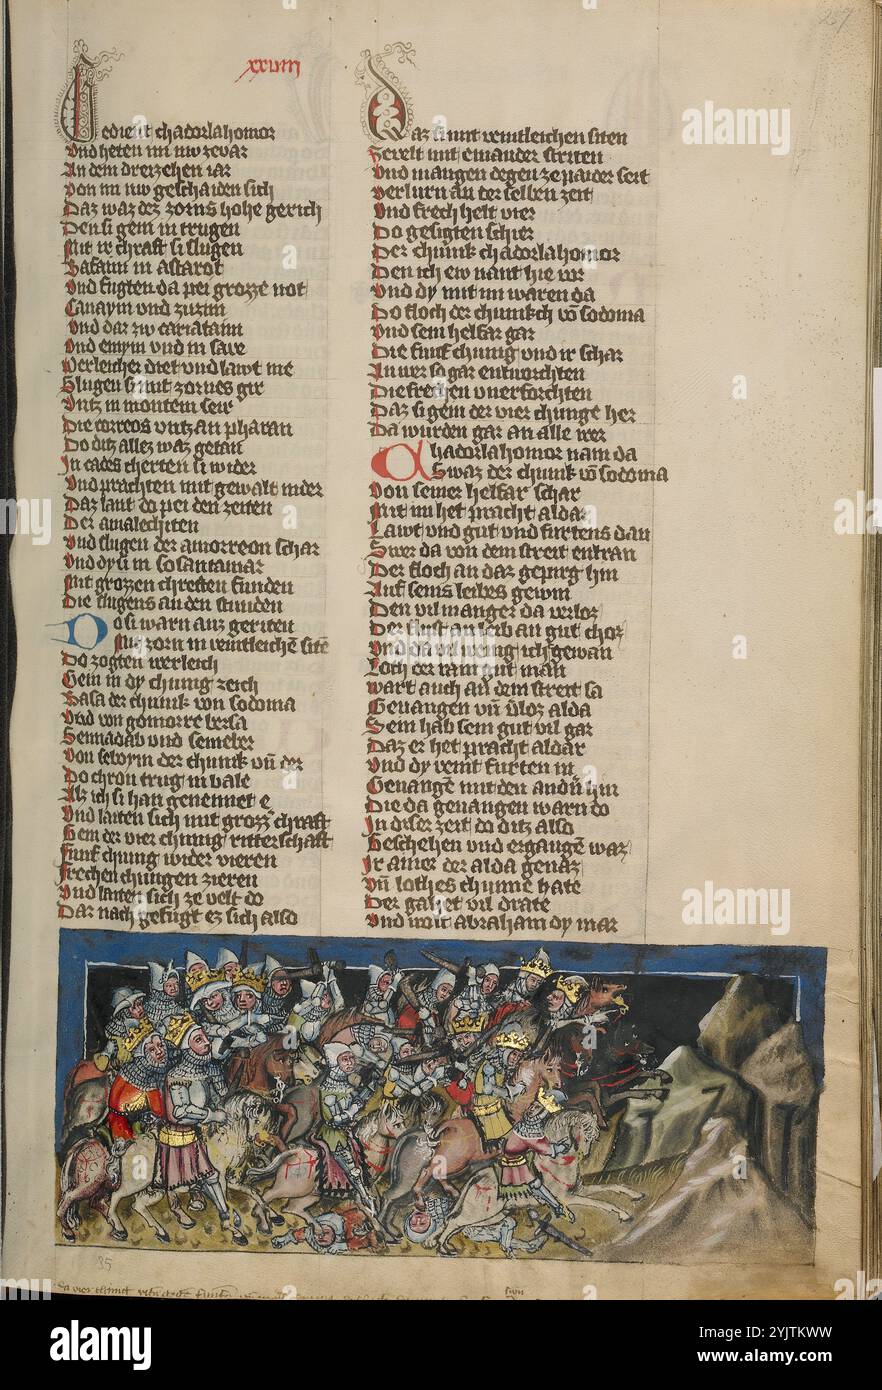 27
xxviii
Gedient chadorlahomor
Und heten im nw zevar
In dem dreizehen iar
Von im nw geschaiden sich
Daz waz dez zorns hohe gerich
Den si gem in trugen
Mit ir chraft si slugen
Rafaim in astarot
Und fugten da pei grozze not
Canaym und zuzim
Und dar zw cariataim
Und emym und in save
Werleicher diet und lawt me
Slugen si mit zornes gir
Untz in montem seir
Die correos untz an pharan
Do ditz allez waz getan
In cades cherten si wider
Und prachten mit gewalt nider
Daz lant do pei den zeiten
Der amalechiten
Und slugen der amorreon schar
Und dy si in sosantamar
Mit grozzen chreften funden
Die slugens an den stunden
Do si warn auz geriten
Mit zorn in veintleichē sitē
Do zogten werleich
Gein in dy chunig reich
Basa der chunik von sodoma
Und von gomorre bersa
Sennadab und semeber
Von seboym der chunik vn̄ der
Do chron trug in vale
Alz ich si han genennet e
Und laiten sich mit grozz chraft
Gem der vier chunig ritterschaft
Funf chunig wider vieren
Frechen chunigen zieren
Und laiten sich ze velt do
Dar nach gefugt ez sich also
Daz si mit veintleichen siten
Sevelt mit einander striten
Und mangen degen ze paider seit
Verlurn an der selben zeit
Und frech helt vier
Do gesigten schier
Der chunik chadorlahomor
Den ich ew nant hie vor
Und dy mit im waren da
Do floch der chunikch vō sodoma
Und sein helfar gar
Die funf chunig und ir schar
In wer so gar entworchten
Die frechen unerforchten
Daz si gem der vier chunge her
Da wurden gar an alle wer
Chadorlahomor nam da
Swaz der chunk vō sodoma
Von seiner helfar schar
Mit im het pracht aldar
Lawt und gut und furtens dan
Swer da von dem streit entran
Der floch an daz gepirg hin
Auf seins leibes gewin
Den vil manger da verloz
Der flust an leib an gut chos
Und da vil wenig ich gewan
Loth der rain gut man
Wart auch an dem streit sa
Gevangen vn̄ vloz alda
Sein hab sein gut vil gar
Daz er het pracht aldar
Und dy veint furten in
Gevangē mit den andn̄ hin
Die da gevangen warn do
In diser zeit do ditz also
Geschehen und ergangē waz
Ir ainer der alda genaz
Vn̄ lothes chunnē hate
Der gahet vil drate
Und wolt abraham dy mar
85
alamy
Image ID: 2YJTKWW
www.alamy.com